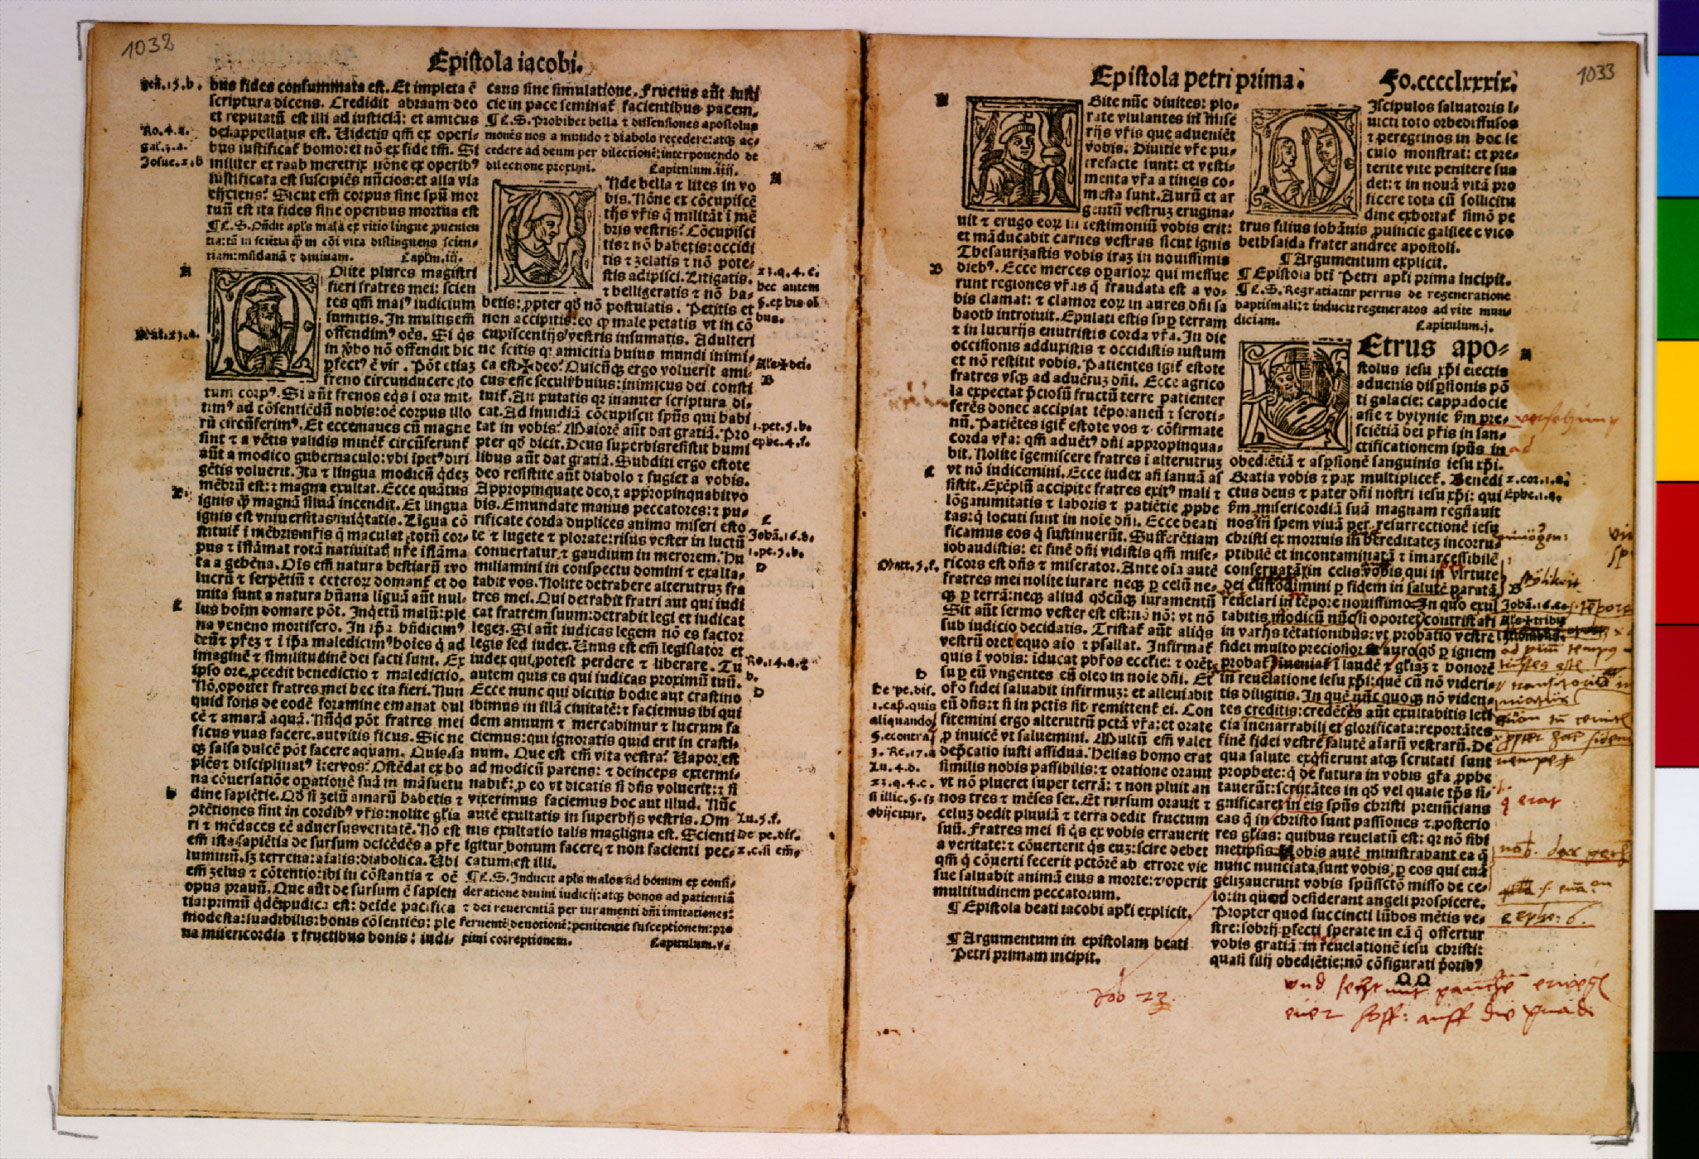 1032
Epistola iacobi.
gen̄.15.b.
Ro.4.a.
gal.3.a.
Josue.2.b
bus fides consummata est. Et impleta ē
scriptura dicens. Credidit abraam deo
et reputatū est illi ad iusticiā: et amicus
dei appellatus est. Uidetis qm̄ ex operi-
bus iustificaꞇ homo: et nō ex fide tm̄. Si
militer et raab meretrix nōne ex operibꝰ
iustificata est suscipiēs nūcios: et alia via
eijciens? Sicut em̄ corpus sine spū mor
tuū est ita fides sine operibus mortua est
¶ L. S. On̄dit apls mala ex vitio lingue ꝓuenien
tia: tā in sciētia qꝫ in cōi vita distinguens scien-
tiam: mūdanā ⁊ diuinam. Caplm.iij.
A
Olite plures magistri
fieri fratres mei: scien
tes qm̄ maiꝰ iudicium
sumitis. In multis em̄
offendimꝰ oēs. Si qs
in ꝟbo nō offendit hic
ꝑfectꝰ ē vir. Pōt etiaꝫ
freno circunducere to
tum corpꝰ. Si aūt frenos eqs i ora mit-
timꝰ ad cōsentiēdū nobis: oē corpus illo
rū circūferimꝰ. Et ecce naues cū magne
sint ⁊ a vētis validis minēt circūferunꞇ
aūt a modico gubernaculo: vbi īpetꝰ diri
gētis voluerit. Ita ⁊ lingua modicū qdeꝫ
mēbrū est: ⁊ magna exultat. Ecce quātus
ignis qꝫ magnā siluā incendit. Et lingua
ignis est vniuersitas iniqtatis. Ligua cō
stituiꞇ i mēbris nr̄is q maculat totū cor-
pus ⁊ īflāmat rotā natiuitaꞇ nr̄e iflāma
ta a gehēna. Oīs em̄ natura bestiarū ⁊ vo
lucrū ⁊ serpētiū ⁊ ceteroꝝ domanꞇ et do
mita sunt a natura hūana liguā aūt nul-
lus hoīm domare pōt. Inqetū malū: ple
na veneno mortifero. In ipa bn̄dicimꝰ
deū ⁊ pr̄eꝫ ⁊ i ipa maledicimꝰ hoīes q ad
imaginē ⁊ similitudinē dei facti sunt. Ex
ipso ore ꝓcedit benedictio ⁊ maledictio.
Nō oportet fratres mei hec ita fieri. Nun
quid fons de eodē foramine emanat dul
cē ⁊ amarā aquā. Nūqd pōt fratres mei
ficus vuas facere. aut vitis ficus. Sic ne
qꝫ salsa dulcē pōt facere aquam. Quis sa
piēs ⁊ disciplinatꝰ iter vos? Ostēdat ex bo
na cōuersatiōe oꝑationē suā in māsuetu
dine sapiētie. Qd si zelū amarū habetis ⁊
ꝯtētiones sint in cordibꝰ vr̄is: nolite glia
ri ⁊ mēdaces eē aduersus veritatē. Nō est
em̄ ista sapiētia de sursum descēdēs a pr̄e
luminū. sꝫ terrena: aialis: diabolica. Ubi
em̄ zelus ⁊ cōtentio: ibi in cōstantia ⁊ oē
opus prauū. Que aūt de sursum ē sapien
tia: primū qdē pudica est: deide pacifica
modesta: suadibilis: bonis cōsentiēs: ple
na misericordia ⁊ fructibus bonis: iudi-
cans sine simulatione. Fructus aūt iusti
cie in pace seminaꞇ facientibus pacem.
¶ L. S. Prohibet bella ⁊ dissensiones apostolus
monēs nos a mundo ⁊ diabolo recedere: atqꝫ ac-
cedere ad deum per dilectionē: interponendo de
dilectione proximi. Capitulum.iiij.
A
Nde bella ⁊ lites in vo
bis. Nōne ex cōcupiscē
tijs vr̄is q militāt i mē
bris vestris? Cōcupisci
tis: ⁊ nō habetis: occidi
tis ⁊ zelatis ⁊ nō pote-
stis adipisci. Litigatis.
⁊ belligeratis ⁊ nō ha-
betis: ꝓpter qd nō postulatis. Petitis et
non accipitis: eo qꝫ male petatis vt in cō
cupiscentijs vestris insumatis. Adulteri
ne scitis qꝛ amicitia huius mundi inimi-
ca est deo? Quicūqꝫ ergo voluerit ami-
cus esse seculi huius: inimicus dei consti
tuiꞇ. An putatis qꝛ inaniter scriptura di-
cat. Ad inuidiā cōcupiscit spūs qui habi
tat in vobis? Maiorē aūt dat gratiā. Pro
pter qd dicit. Deus superbis resistit humi
libus aūt dat gratiā. Subditi ergo estote
deo resistite aūt diabolo ⁊ fugiet a vobis.
Appropinquate deo, ⁊ appropinquabit vo
bis. Emundate manus peccatores: ⁊ pu-
rificate corda duplices animo miseri esto
te ⁊ lugete ⁊ plorate: risus vester in luctū
conuertatur ⁊ gaudium in merorem. Hu
miliamini in conspectu domini ⁊ exalta-
tabit vos. Nolite detrahere alterutruꝫ fra
tres mei. Qui detrahit fratri aut qui iudi
cat fratrem suum: detrahit legi et iudicat
legeꝫ. Si aūt iudicas legem nō es factor
legis sed iudex. Unus est em̄ legislator et
iudex qui potest perdere ⁊ liberare. Tu
autem quis es qui iudicas proximū tuū.
Ecce nunc qui dicitis hodie aut crastino
ibimus in illā ciuitatē: ⁊ faciemus ibi qui
dem annum ⁊ mercabimur ⁊ lucrum fa
ciemus: qui ignoratis quid erit in crasti-
num. Que est em̄ vita vestra? Uapor est
ad modicū parens: ⁊ deinceps extermi-
nabiꞇ: ꝓ eo vt dicatis si dn̄s voluerit: ⁊ si
vixerimus faciemus hoc aut illud. Nūc
autē exultatis in superbijs vestris. Om
nis exultatio talis maligna est. Scienti
igitur bonum facere, ⁊ non facienti pec-
catum est illi.
¶ L. S. Inducit apls malos ad bonum ex consi-
deratione diuini iudicij: atqꝫ bonos ad patientiā
⁊ dei reuerentiā per iuramenti dn̄i imitationes:
feruentē deuotionē: penitentie susceptionem: pro
ximi correptionem. Capitulum.v.
23.q.4.c.
hec autem
§.ex his oī
bus.
B
1.pet.5.b.
ephe.4.f.
C
Johā.16.d.
1.pe.5.b.
D
Ro.14.a.
Lu.5.f.
De pe.dis.
2.c.si em̄.
1033
Epistola petri prima. Fo.cccclxxxix.
A
Gite nūc diuites: plo-
rate vlulantes in mise
rijs vr̄is que adueniēt
vobis. Diuitie vr̄e pu-
trefacte sunt: et vesti-
menta vr̄a a tineis co-
mesta sunt. Aurū et ar
gentū vestruꝫ erugina-
uit ⁊ erugo eoꝝ in testimoniū vobis erit:
et māducabit carnes vestras sicut ignis
Thesaurizastis vobis iraꝫ in nouissimis
diebꝰ. Ecce merces oꝑarioꝝ qui messue
runt regiones vr̄as q fraudata est a vo-
bis clamat: ⁊ clamor eoꝝ in aures dn̄i sa
baoth introiuit. Epulati estis suꝑ terram
⁊ in luxurijs enutristis corda vr̄a. In die
occisionis adduxistis ⁊ occidistis iustum
et nō restitit vobis. Patientes igiꞇ estote
fratres vsqꝫ ad aduētuꝫ dn̄i. Ecce agrico
la expectat p̄ciosū fructū terre patienter
ferēs donec accipiat tēporaneū ⁊ seroti-
nū. Patiētes igiꞇ estote vos ⁊ cōfirmate
corda vr̄a: qm̄ aduētꝰ dn̄i appropinqua-
bit. Nolite igemiscere fratres i alterutruꝫ
vt nō iudicemini. Ecce iudex añ ianuā as
sistit. Exēplū accipite fratres exitꝰ mali ⁊
lōganimitatis ⁊ laboris ⁊ patiētie ꝓphe
tas: q locuti sunt in noīe dn̄i. Ecce beati
ficamus eos q sustinuerūt. Sufferētiam
iob audistis: et finē dn̄i vidistis qm̄ mise-
ricors est dn̄s ⁊ miserator. Ante oīa autē
fratres mei nolite iurare neqꝫ ꝑ celū ne-
qꝫ ꝑ terrā: neqꝫ aliud qdcūqꝫ iuramentū
Sit aūt sermo vester est est: nō nō: vt nō
sub iudicio decidatis. Tristaꞇ aūt aliqs
vestrū oret equo aīo ⁊ psallat. Infirmaꞇ
quis i vobis: īducat pb̄ros ecclie: ⁊ orēt
suꝑ eū vngentes eū oleo in noīe dn̄i. Et
oro fidei saluabit infirmuꝫ: et alleuiabit
eū dn̄s: ⁊ si in pctīs sit remittenꞇ ei. Con
fitemini ergo alterutrū pctā vr̄a: et orate
ꝓ inuicē vt saluemini. Multū em̄ valet
dep̄catio iusti assidua. Helias homo erat
similis nobis passibilis: ⁊ oratione orauit
vt nō plueret super terrā: ⁊ non pluit an
nos tres ⁊ mēses sex. Et rursum orauit ⁊
celuꝫ dedit pluuiā ⁊ terra dedit fructum
suū. Fratres mei si qs ex vobis errauerit
a veritate: ⁊ cōuerterit qs euꝫ: scire debet
qm̄ q cōuerti fecerit pctōrē ab errore vie
sue saluabit animā eius a morte: ⁊ operit
multitudinem peccatorum.
¶ Epistola beati iacobi apli explicit.
¶ Argumentum in epistolam beati
Petri primam incipit.
B
C
Matt.5.f.
D
De pe.dis.
1.cap.quis
aliquando
§.econtra
3.Re.17.a
Lu.4.d.
23.q.4.c.
si illic.§.sꝫ
obijcitur.
Iscipulos saluatoris i-
uicti toto orbe diffusos
⁊ peregrinos in hoc se
culo monstrat: et pre-
terite vite penitere sua
det: ⁊ in nouā vitā pro
ficere tota cū sollicitu
dine exhortaꞇ simō pe
trus filius iohānis ꝓuincie galilee e vico
bethsaida frater andree apostoli.
¶ Argumentum explicit.
¶ Epistola bti Petri apli prima incipit.
¶ L. S. Regratiatur petrus de regeneratione
baptismali: ⁊ inducit regeneratos ad vite mun-
diciam. Capitulum.j.
Etrus apo-
stolus iesu xp̄i electis
aduenis disꝑsionis pō
ti galacie: cappadocie
asie ⁊ bytynie ẜm pre-
sciētiā dei pr̄is in san-
ctificationem spūs in
obediētiā ⁊ asꝑsionē sanguinis iesu xp̄i.
Gratia vobis ⁊ pax multipliceꞇ. Benedi
ctus deus ⁊ pater dn̄i nostri iesu xp̄i: qui
ẜm misericordiā suā magnam regn̄auit
nos in spem viuā per resurrectionē iesu
christi ex mortuis in hereditateꝫ incorru-
ptibilē et incontaminatā ⁊ imarcessibilē
conseruatā in celis vobis qui in virtute
dei custodimini ꝑ fidem in salutē paratā
reuelari in tēpore nouissimo. In quo exul
tabitis modicū nūc si oportet contristari
in varijs tētationibus: vt probatio vestre
fidei multo preciosior auro qd ꝑ ignem
probaꞇ inueniaꞇ i laudē ⁊ gliaꝫ ⁊ honorē
in reuelatione iesu xp̄i: quē cū nō videri-
tis diligitis. In quē nūc quoqꝫ nō viden-
tes creditis: credētes aūt exultabitis leti
cia inenarrabili et glorificata: reportātes
finē fidei vestre salutē aīarū vestrarū. De
qua salute exqsierunt atqꝫ scrutati sunt
prophete: q de futura in vobis gr̄a ꝓphe
tauerūt: scrutātes in qd vel quale tps si-
gnificaret in eis spūs christi prenūcians
eas q in christo sunt passiones ⁊ posterio
res glias: quibus reuelatū est: qꝛ nō sibi
metipsis vobis autē ministrabant ea q
nunc nunciata sunt vobis: ꝑ eos qui euā
gelizauerunt vobis spūsctō misso de ce-
lo: in quod desiderant angeli prospicere.
Propter quod succincti lūbos mētis ve-
stre: sobrij ꝑfecti sperate in eā q offertur
vobis gratiā in reuelationē iesu christi:
quasi filij obediētie: nō cōfigurati priorib
A
2.cor.1.a.
Ephe.1.a.
B
Johā.16.e.
q erat
e Ephe: 6.
QQ
Job 23.